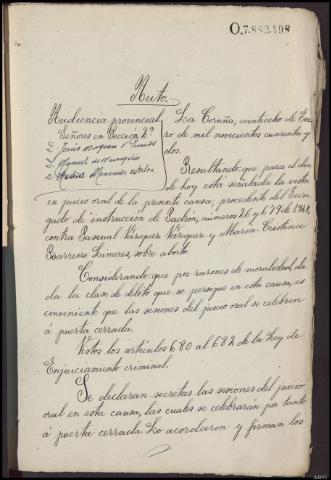 O.7.882408
Auto.
Audiencia provincial
Señores en Sección 2ª
La Coruña, veintiocho de Ene-
ro de mil novecientos cuarenta y
dos.
Resultando, que para el día
de hoy está señalada la vista
en juicio oral de la presente causa, procedente del Juz-
gado de instrucción de Padrón, números 26 y 679 de 1941,
contra Pascual Vázquez Vázquez y María Cristina
Barreiro Limeres, sobre aborto.
Considerando: que por razones de moralidad, da-
da la clase de delito que se persogue en esta causa, es
conveniente que las sesiones del juicio oral se celebren
á puerta cerrada.
Vistos los artículos 680 al 682 de la Ley de
Enjuiciamiento criminal.
Se declaran secretas las sesiones del juicio
oral en esta causa, las cuales se celebrarán por tanto
á puerta cerrada. Lo acordaron y firman los